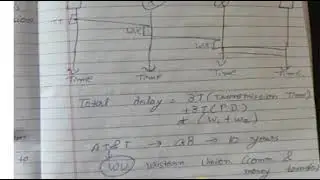 TT
W1
W2
Time Time Time Time
Total delay = 3T (Transmission Time)
+3Z (P.D)
+ (W1 + W2)
AT&T → GB → 10 years
WU Western Union (comm &
money transfer)
to